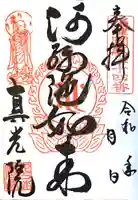 奉拝
令和 年
月 日
阿弥陀如来
真光院